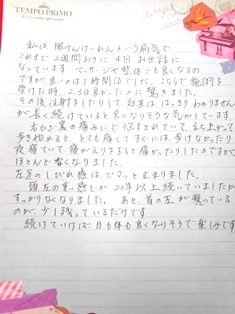 TEMPO PRIMO
私は、眼けんけいれんという病気で
これまで2週間おきに、4回お世話に
なっています。マッサージや整体でも良くなるの
ですが、良いのは1時間ほどでした。こちらで施術を
受けた時、2、3日良かったのに驚きました。
その後注射をしたりして効果ははっきりわかりません
が長く続けていると良くなりそうな気がしています。
右ひざ裏の痛みにも悩まされていて、立ち上がって
歩き始めると、とても痛くてすぐには歩けなかったり
夜寝ていて、寝がえりすると痛かったりしたのですが
ほとんど無くなりました。
左足のしびれ感は、ピタッと止まりました。
頭左の重い感じが20年以上続いていましたが
すっかりなくなりました。あと、首の左が凝っている
のが、少し残っているだけです
続けていけば目も体も良くなりそうで楽しみです